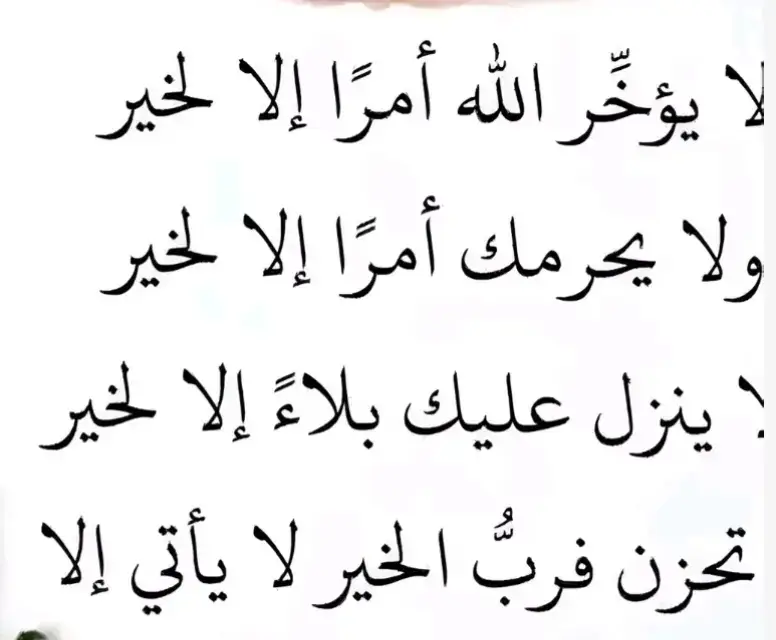 لا يؤخِّر الله أمرًا إلا لخير
ولا يحرمك أمرًا إلا لخير
لا ينزل عليك بلاءً إلا لخير
تحزن فربُّ الخير لا يأتي إلا